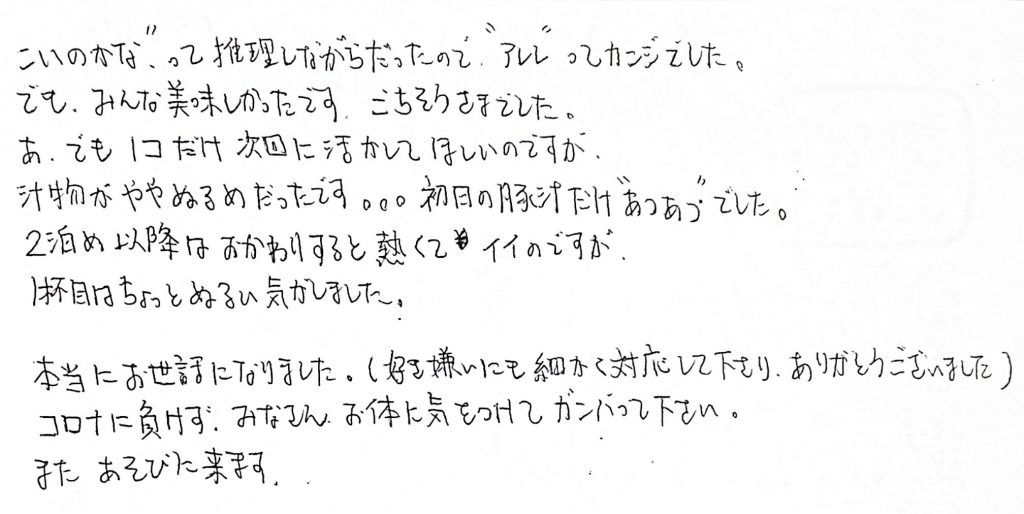 こいのかな"、って推理しながらだったので、"アレ"ってカンジでした。
でも、みんな美味しかったです、ごちそうさまでした。
あ、でも1コだけ次回に活かしてほしいのですが、
汁物がややぬるめだったです。。。初日の豚汁だけ"あつあつ"でした。
2泊め以降はおかわりすると熱くてイイのですが、
1杯目はちょっとぬるい気がしました。
本当にお世話になりました。(好き嫌いにも細かく対応して下さり、ありがとうございました)
コロナに負けず、みなさん、お体に気をつけてガンバって下さい。
また あそびに来ます、